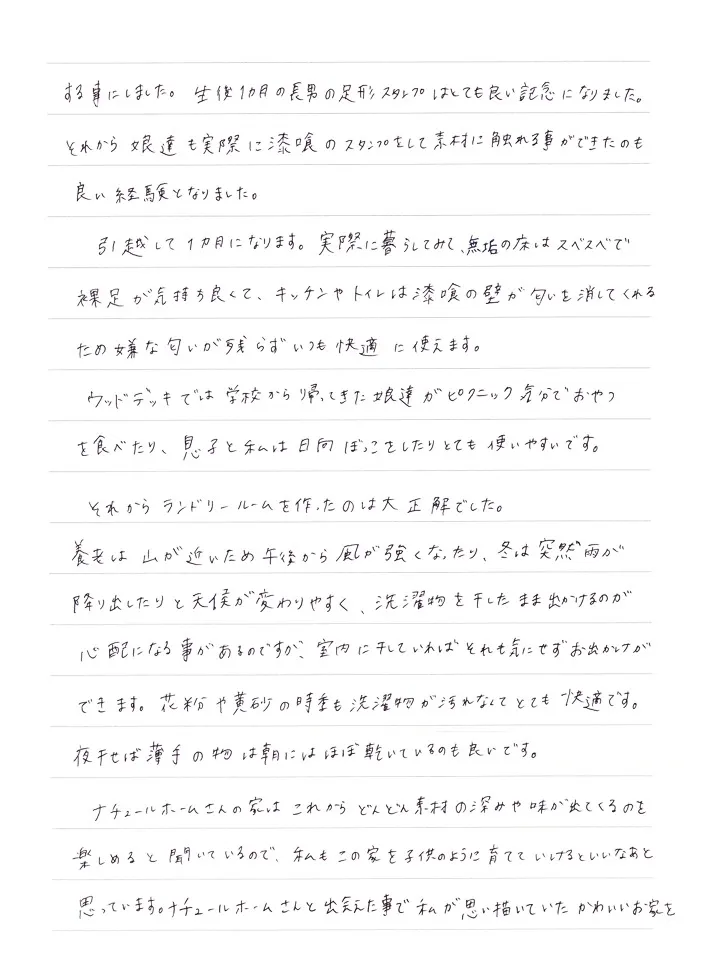 する事にしました。生後1カ月の長男の足形スタンプはとても良い記念になりました。
それから娘達も実際に漆喰のスタンプをして素材に触れる事ができたのも
良い経験となりました。
引越して1カ月になります。実際に暮らしてみて、無垢の床はスベスベで
裸足が気持ち良くて、キッチンやトイレは漆喰の壁が匂いを消してくれる
ため嫌な匂いが残らずいつも快適に使えます。
ウッドデッキでは学校から帰ってきた娘達がピクニック気分でおやつ
を食べたり、息子と私は日向ぼっこをしたりとても使いやすいです。
それからランドリールームを作ったのは大正解でした。
養老は山が近いため午後から風が強くなったり、冬は突然雨が
降り出したりと天候が変わりやすく、洗濯物を干したまま出かけるのが
心配になる事があるのですが、室内に干していればそれも気にせずお出かけが
できます。花粉や黄砂の時季も洗濯物が汚れなくてとても快適です。
夜干せば薄手の物は朝にはほぼ乾いているのも良いです。
ナチュールホームさんの家はこれからどんどん素材の深みや味が出てくるのを
楽しめると聞いているので、私もこの家を子供のように育てていけるといいなあと
思っています。ナチュールホームさんと出会えた事で私が思い描いていたかわいいお家を